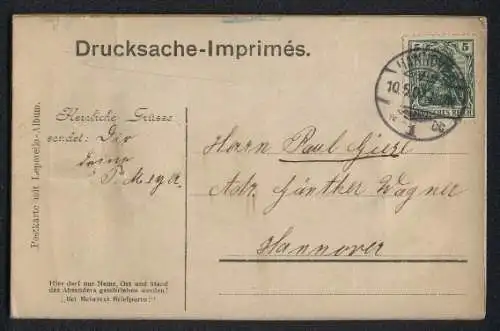 Drucksache-Imprimés.
5 5
HANNOVER
10.5.
1 cc
Postkarte mit Leporello-Album.
Herzliche Grüsse
sendet: Dir
deine
Meyer
Herrn Paul Giese
Adr. Günther Wagner
Hannover
Hier darf nur Name, Ort und Stand
des Absenders geschrieben werden!
Bei Mehrtext Briefporto!